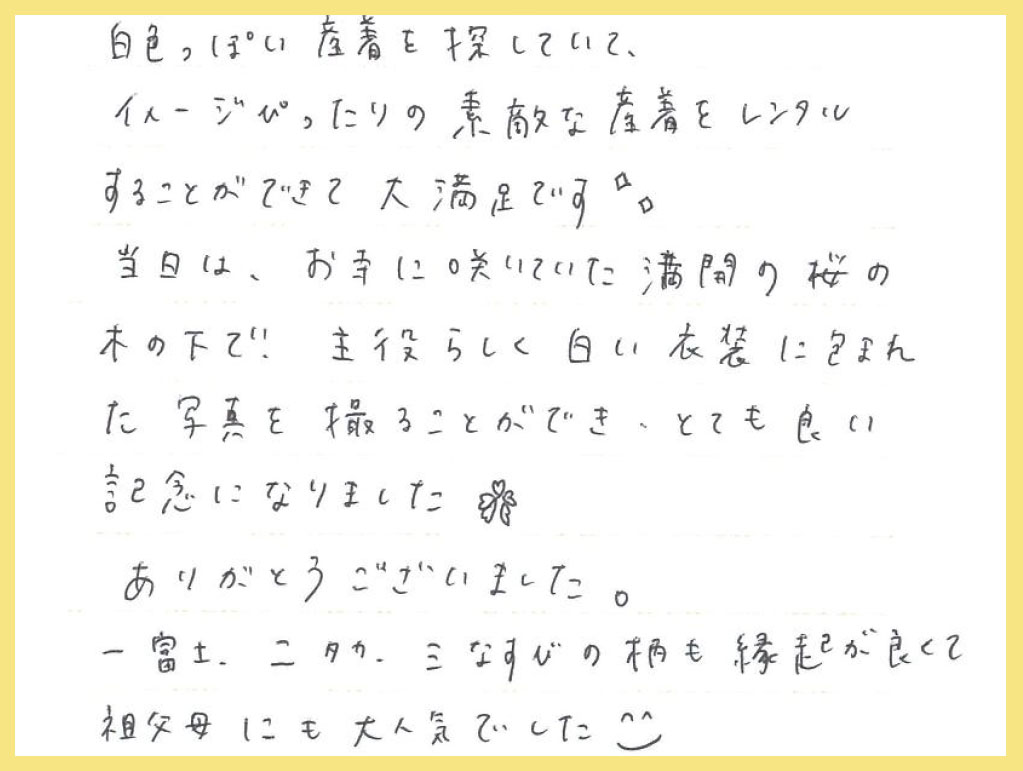 白色っぽい産着を探していて、
イメージぴったりの素敵な産着をレンタル
することができて大満足です
当日は、お寺に咲いていた満開の桜の
木の下で!! 主役らしく白い衣装に包まれ
た写真を撮ることができ、とても良い
記念になりました
ありがとうございました。
一富士、二タカ、三なすびの柄も縁起が良くて
祖父母にも大人気でした